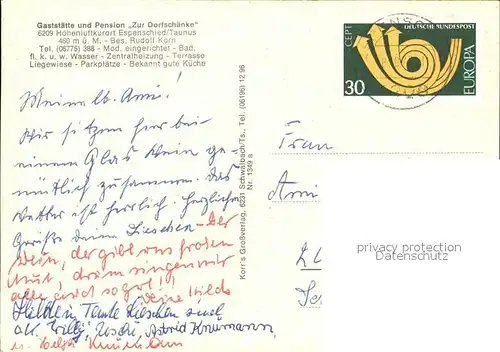 Gaststätte und Pension „Zur Dorfschänke"
6209 Höhenluftkurort Espenschied/Taunus
460 m ü. M. - Bes. Rudolf Korn
Tel. (06775) 388 - Mod. eingerichtet - Bad,
fl. k. u. w. Wasser - Zentralheizung - Terrasse
Liegewiese - Parkplätze - Bekannt gute Küche
CEPT
DEUTSCHE BUNDESPOST
EUROPA
30
Meine lb. Ami!
Wir sitzen hier bei
einem Glas Wein ge-
mütlich zusammen. Das
Wetter ist herrlich. Herzlichen
Grüße Deine Lieschen - Der
Wein, der gibt uns frohen
Mut, drum singen wir
Deine Hilde
Tante Lieschen sind
Willy, Uschi, Astrid
u.
Korr's Großverlag, 6231 Schwalbach/Ts., Tel. (06196) 12 96
Nr. 1349 a
Frau
Ami
privacy protection
Ansichtskarten